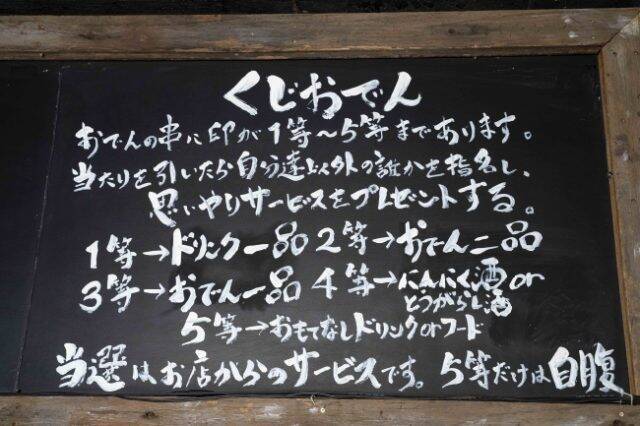 くじおでん
おでんの串に印が1等～5等まであります。
当たりを引いたら自分達以外の誰かを指名し、
思いやりサービスをプレゼントする。
1等→ドリンク一品 2等→おでん二品
3等→おでん一品 4等→にんにく酒or
とうがらし酒
5等→おもてなしドリンクorフード
当選はお店からのサービスです。5等だけは自腹